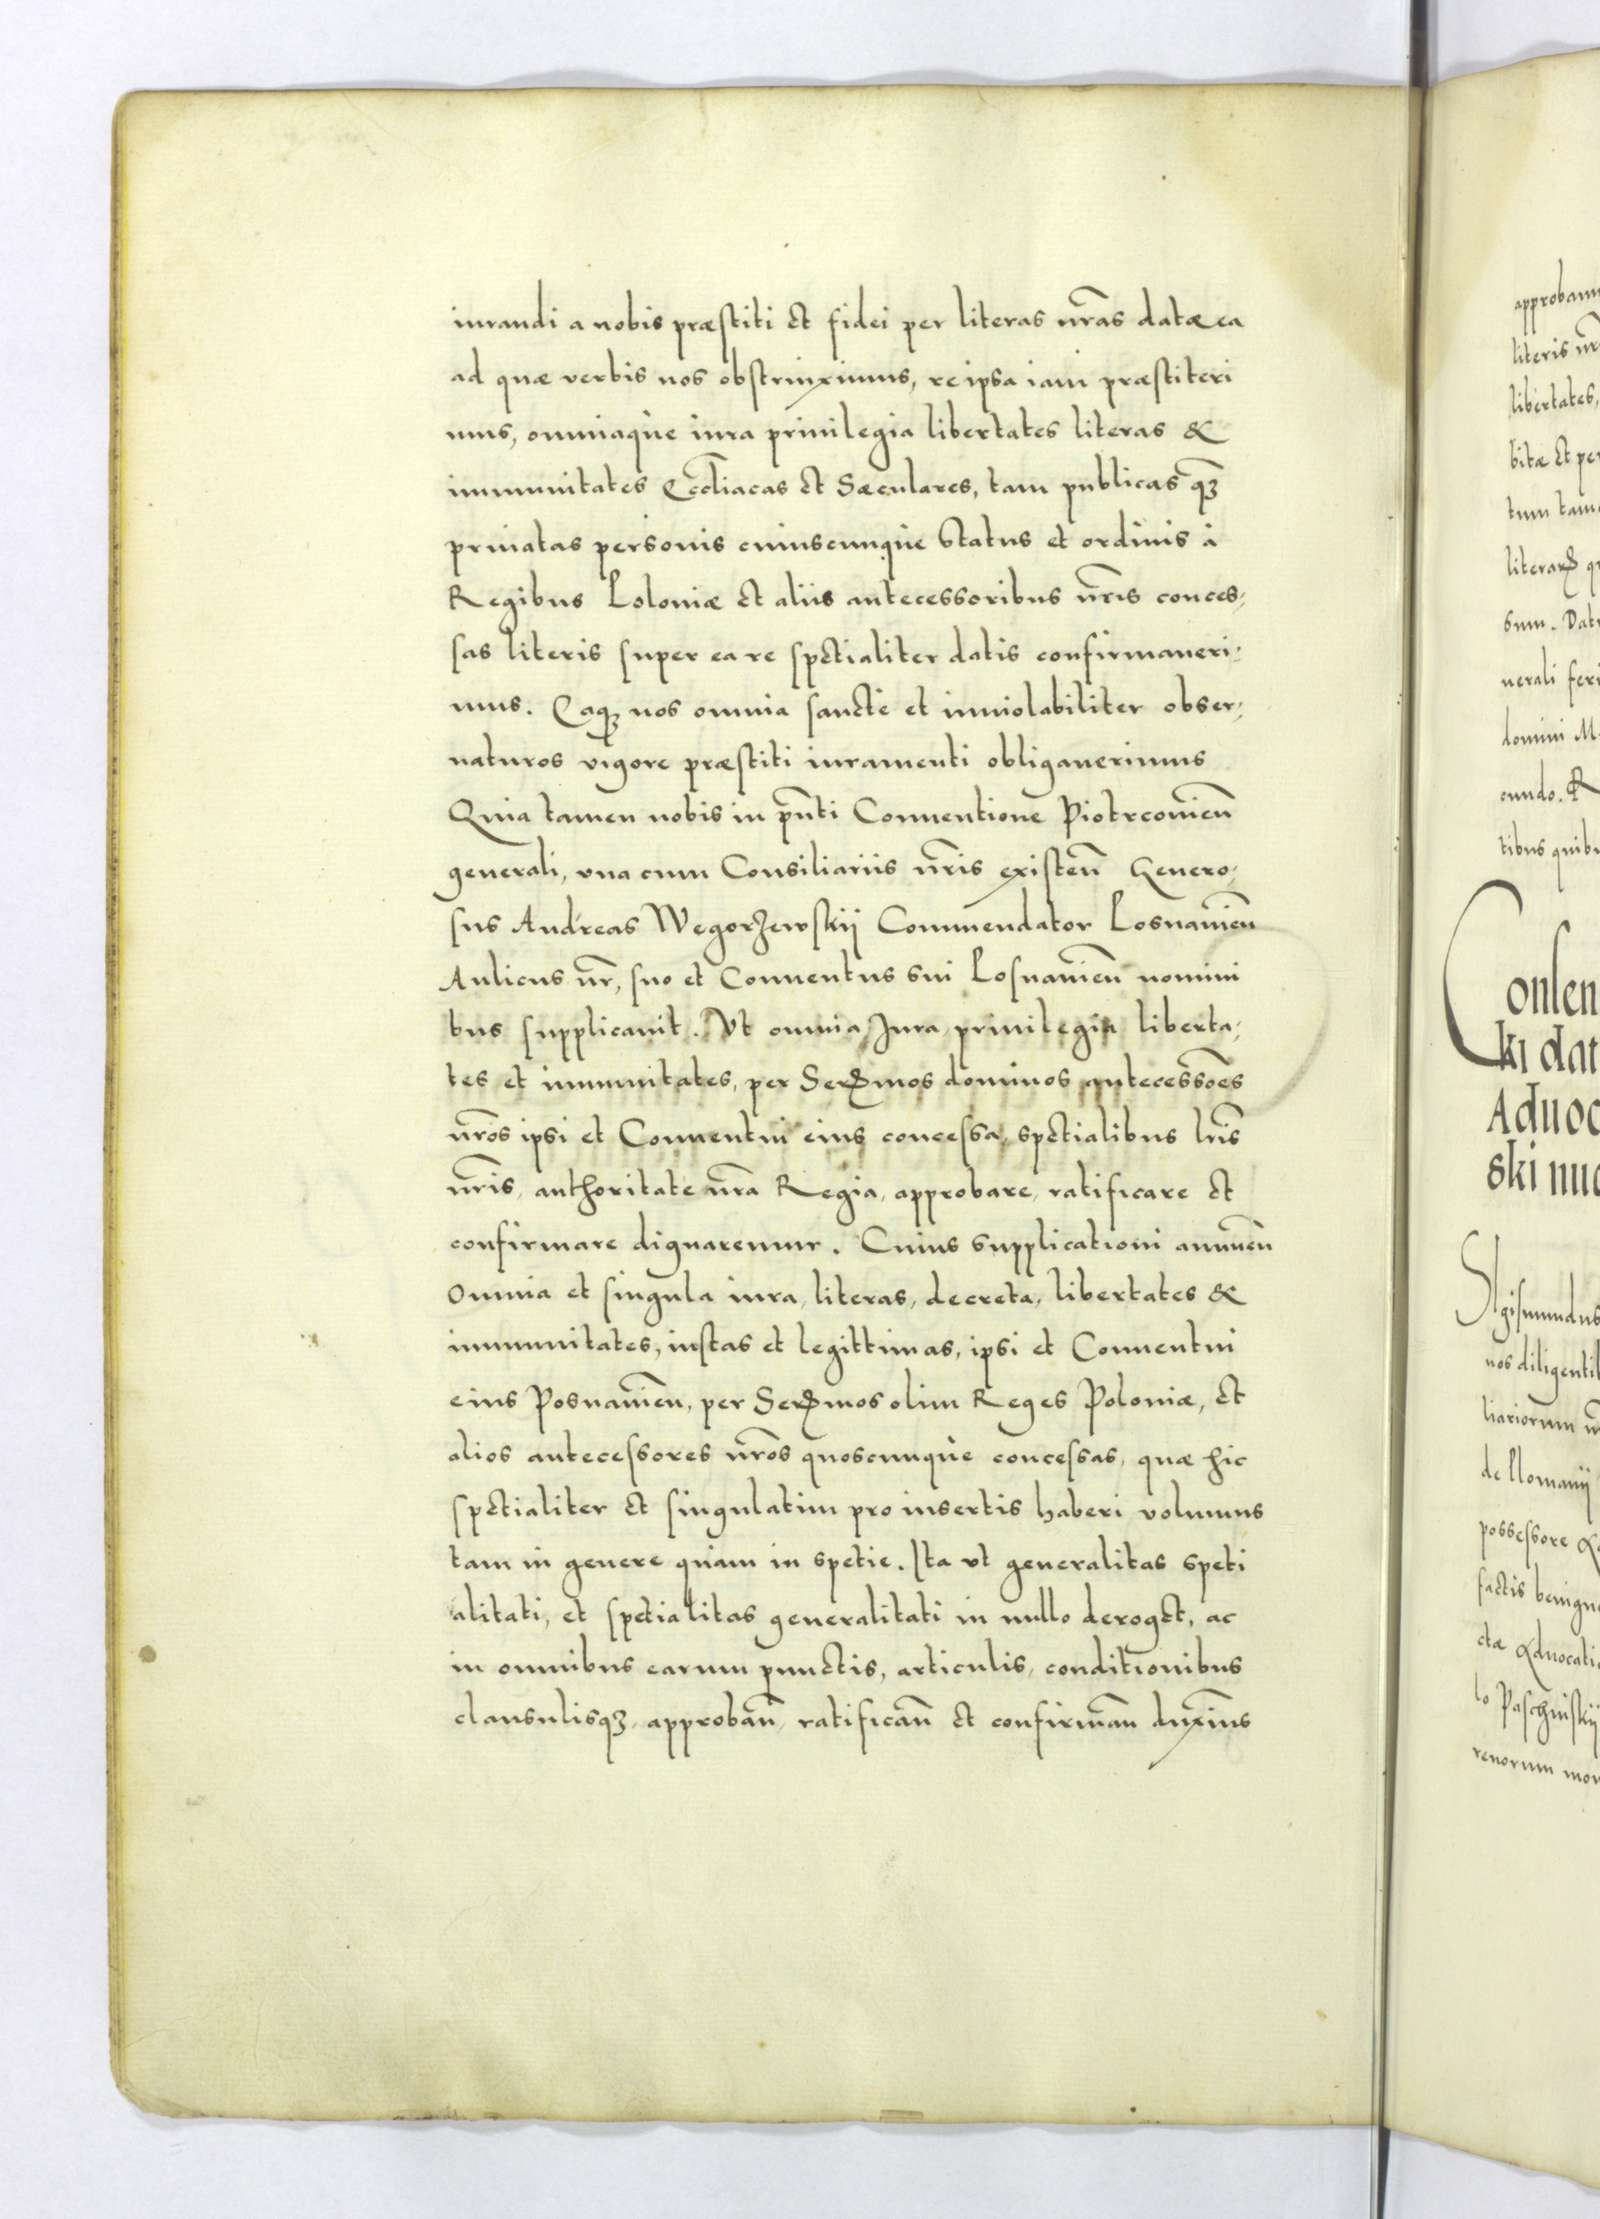 iurandi a nobis præstiti et fidei per literas nr̃as datæ ea
ad quæ verbis nos obstrinximus, re ipsa iam præstiteri
mus, omniaque iura priuilegia libertates literas &
immunitates Eccl̃iacas et Sæculares, tam publicas qȝ
priuatas personis cuiuscunque status et ordinis à
Regibus Poloniæ et aliis antecessoribus nr̃is conces,,
sas literis super ea re spetialiter datis confirmaueri,,
mus. Eaqȝ nos omnia sancte et inuiolabiliter obser,,
uaturos vigore præstiti iuramenti obligauerimus
Quia tamen nobis in pñti Conuentione Piotrcouieñ
generali, vna cum Consiliariis nr̃is existeñ Genero,,
sus Andreas Wegorzewskij Commendator Posnanieñ
Aulicus nr̃, suo et Conuentus sui Posnanieñ nomini
bus supplicauit. Vt omnia Jura priuilegia liberta,,
tes et immunitates, per Serꝫmos dominos antecessoẽs
nr̃os ipsi et Conuentui eius concessa, spetialibus lr̃is
nr̃is, authoritate nr̃a Regia, approbare, ratificare et
confirmare dignaremur. Cuius supplicationi annueñ
Omnia et singula iura, literas, decreta, libertates &
immunitates, iustas et legittimas, ipsi et Conuentui
eius Posnanieñ, per Serꝫmos olim Reges Poloniæ, et
alios antecessores nr̃os quoscunque concessas, quæ hic
spetialiter et singulatim pro insertis haberi volumus
tam in genere quam in spetie. Ita vt generalitas speti
alitati, et spetialitas generalitati in nullo deroget, ac
in omnibus earum punctis, articulis, conditionibus
clausulisqȝ, approbañ, ratificañ et confirmañ duxim̃us
approbamu
literis nr̃
libertates,
bitæ et per
tum tame
sum. Dat
nerali feri
domini M
cundo. R
tibus quibu
Consen
ki dat
Aduoc
ski nuc
SIgismundus
nos diligenti
liariorum
possessore
factis benign
ctæ Aduocati
lo Paschinskij
renorum mon